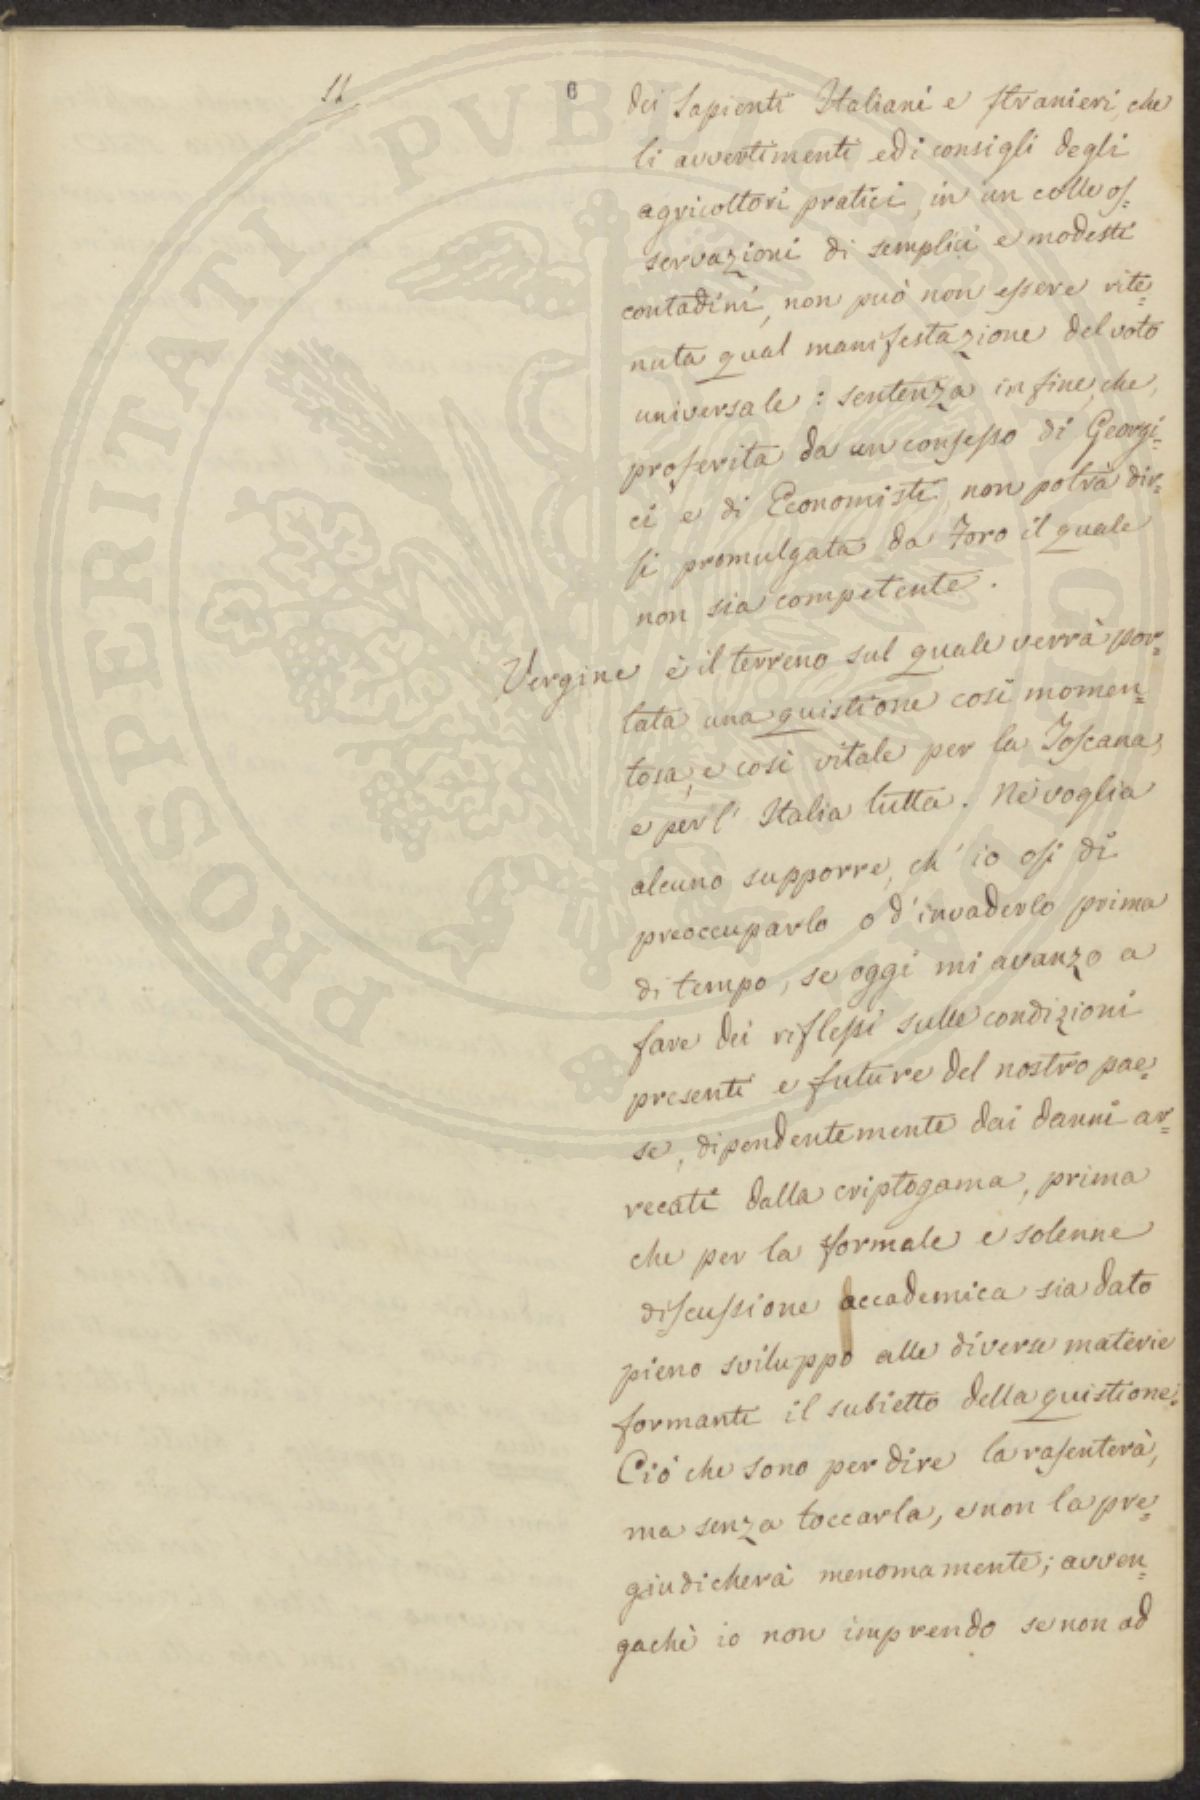 11
6
dei Sapienti Italiani e stranieri, che
li avvertimenti ed i consigli degli
agricoltori pratici, in un colle os=
servazioni di semplici e modesti
contadini, non può non essere rite=
nuta qual manifestazione del voto
universale: sentenza in fine, che,
proferita da un consesso di Georgi=
ci e di Economisti non potrà dir=
si promulgata da Foro il quale
non sia competente.
Vergine è il terreno sul quale verrà por=
tata una quistione così momen=
tosa, e così vitale per la Toscana,
e per l' Italia tutta. Nè voglia
alcuno supporre, ch' io osi di
preoccuparlo o d'invaderlo prima
di tempo, se oggi mi avanzo a
fare dei riflessi sulle condizioni
presenti e future del nostro pae=
se, dipendentemente dai danni ar=
recati dalla criptogama, prima
che per la formale e solenne
discussione accademica sia dato
pieno sviluppo alle diverse materie
formanti il subietto della quistione.
Ciò che sono per dire la rasenterà,
ma senza toccarla, e non la pre=
giudicherà menomamente; avven=
gachè io non imprendo se non ad
PROSPERITATI PVBLICAE AVGENDAE